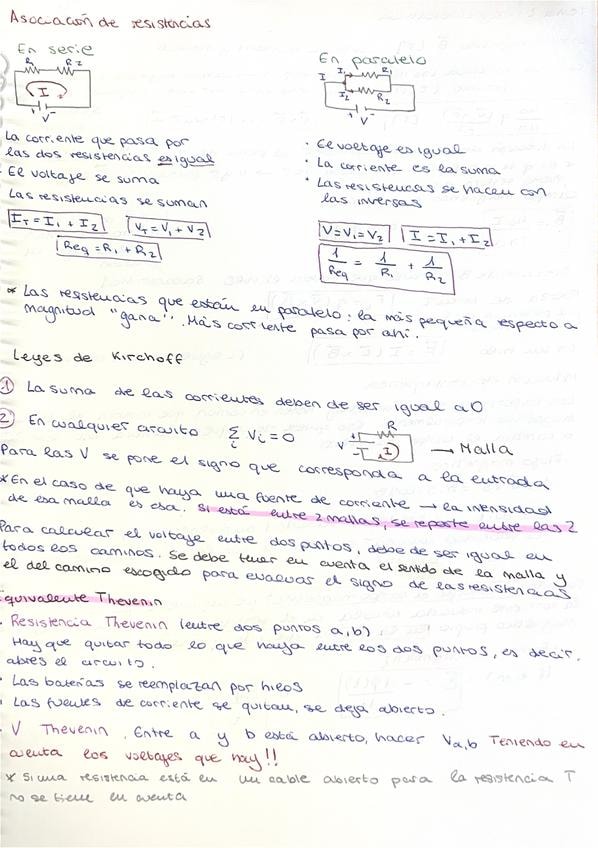 Asociación de resistencias
En serie
R1 R2
I
V
La corriente que pasa por
las dos resistencias es igual
· El voltaje se suma
Las resistencias se suman
IT = I1 + I2 VT = V1 + V2
Req = R1 + R2
En paralelo
I I1 R1
I2 R2
V
· El voltaje es igual
· La corriente es la suma
· Las resistencias se hacen con
las inversas
V=V1=V2 I = I1 + I2
1/Req = 1/R1 + 1/R2
* Las resistencias que están en paralelo: la más pequeña respecto a
magnitud "gana". Más corriente pasa por ahí.
Leyes de Kirchoff
1 La suma de las corrientes deben de ser igual a 0
2 En cualquier circuito Σi Vi = 0
R
V I → Malla
Para las V se pone el signo que corresponda a la entrada
* En el caso de que haya una fuente de corriente → la intensidad
de esa malla es esa. Si está entre 2 mallas, se reparte entre las 2
Para calcular el voltaje entre dos puntos, debe de ser igual en
todos los caminos. Se debe tener en cuenta el sentido de la malla y
el del camino escogido para evaluar el signo de las resistencias
Equivalente Thevenin
· Resistencia Thevenin (entre dos puntos a,b)
Hay que quitar todo lo que haya entre los dos puntos, es decir,
abres el circuito.
· Las baterías se reemplazan por hilos
· Las fuentes de corriente se quitan, se deja abierto.
· V Thevenin. Entre a y b está abierto, hacer Va,b Teniendo en
cuenta los voltajes que hay!!
* Si una resistencia está en un cable abierto para la resistencia T
no se tiene en cuenta